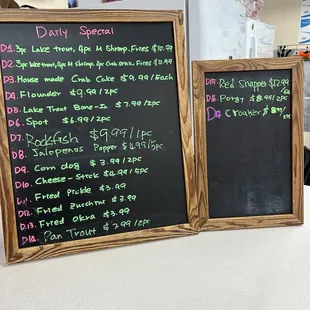 Daily Special
D1. 3pc Lake trout, 4pc M Shrimp, Fries $10.99
D2. 3pc lake trout, 4pc M Shrimp, 2pc Crab stick, Fries $12.99
D3. House made Crab Cake $9.99/Each
D4. Flounder $9.99/2pc
D5. Lake Trout Bone-In $7.99/2pc
D6. Spot $6.99/2pc
D7. Rockfish $9.99/1pc
D8. Jalapenos Popper $4.99/5pc
D9. Corn dog $3.99/2pc
D10. Cheese-Stick $4.99/5pc
D11. Fried Pickle $3.99
D12. Fried Zucchini $3.99
D13. Fried Okra $3.99
D14. Pan Trout $7.99/2pc
D15. Red Snapper $12.99
D16. Porgy $8.99/2pc
Croaker